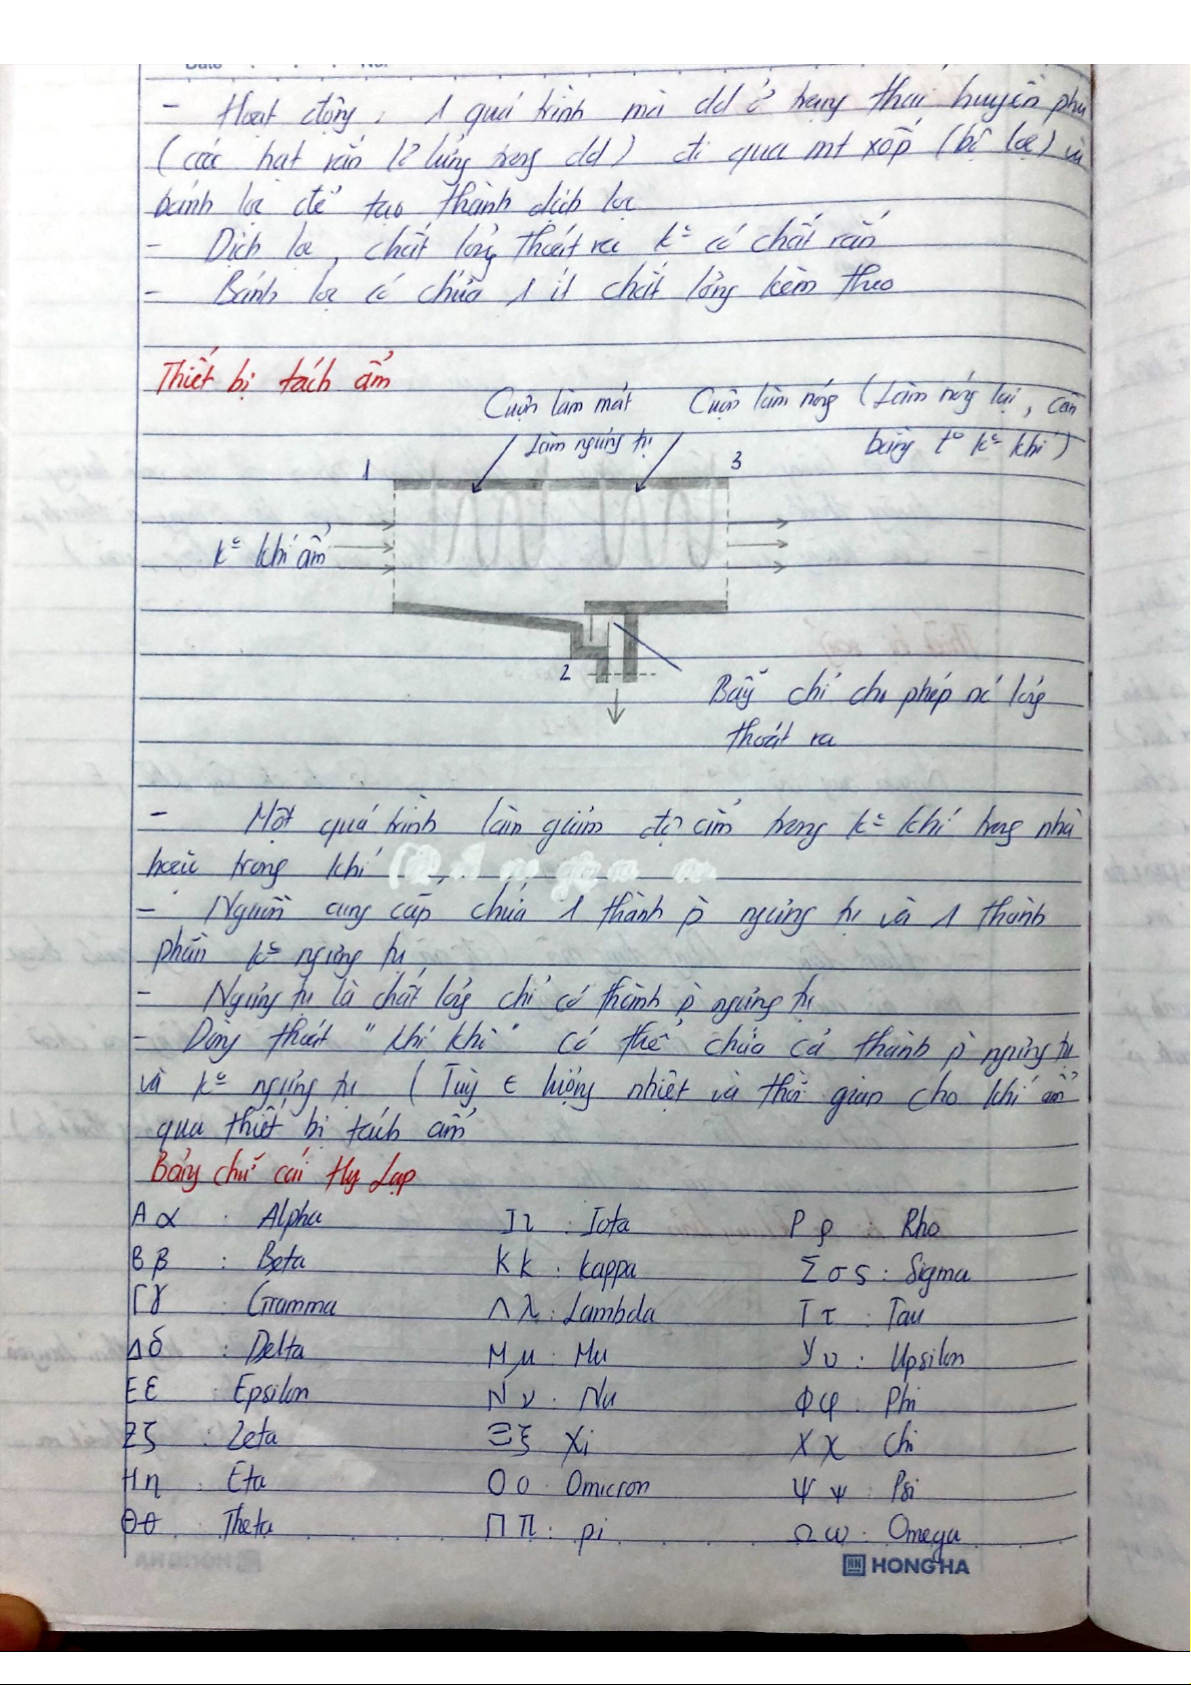 Date . . . No.
- Hoạt động : 1 quá trình mà dd ở trạng thái huyền phù
(các hạt rắn lơ lửng trong dd) đi qua mt xốp (bộ lọc) và
bánh lọc để tạo thành dịch lọc
- Dịch lọc, chất lỏng thoát ra kº có chất rắn
- Bánh lọc có chứa 1 ít chất lỏng kèm theo
Thiết bị tách ẩm
Cuộn làm mát
Làm ngưng tụ
Cuộn làm nóng (Làm nóng lại, cân
bằng tº kº khí)
1
3
kº khí ẩm
2
Bẫy chỉ cho phép nc lỏng
thoát ra
- Một quá trình làm giảm độ ẩm trong kº khí trong nhà
hoặc trong khí
- Nguồn cung cấp chứa 1 thành p ngưng tụ và 1 thành
phần kº ngưng tụ
- Ngưng tụ là chất lỏng chỉ có thành p ngưng tụ
- Dòng thoát "khí khô" có thể chứa cả thành p ngưng tụ
và kº ngưng tụ (Tuỳ ∈ lượng nhiệt và thời gian cho khí ẩm
qua thiết bị tách ẩm
Bảng chữ cái Hy Lạp
Α α : Alpha Ι ι : Iota Ρ ρ : Rho
Β β : Beta Κ k : kappa Σ σ ς : Sigma
Γ γ : Gamma Λ λ : Lambda Τ τ : Tau
Δ δ : Delta Μ μ : Mu Υ υ : Upsilon
Ε ε : Epsilon Ν ν : Nu Φ φ : Phi
Ζ ζ : Zeta Ξ ξ Xi Χ χ : Chi
Η η : Eta Ο ο : Omicron Ψ ψ : Psi
Θ θ : Theta Π π : pi Ω ω : Omega
HONG HA